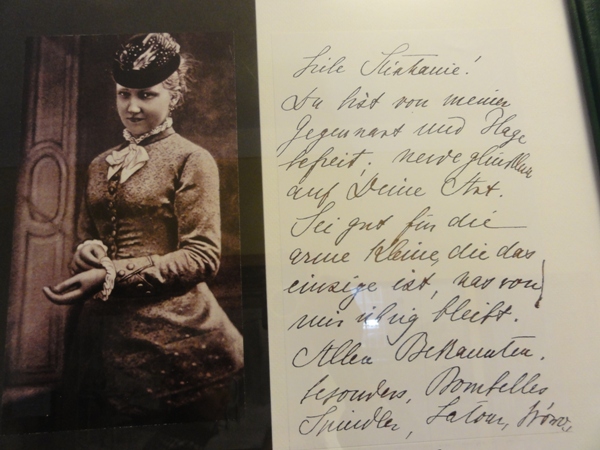 Liebe Stephanie!
Du bist von meiner
Gegenwart und Plage
befreit; werde glücklich
auf Deine Art.
Sei gut für die
arme Kleine, die das
einzige ist, was von
mir übrig bleibt.
Allen Bekannten,
besonders, Bombelles
Spindler, Latour, Wowo,